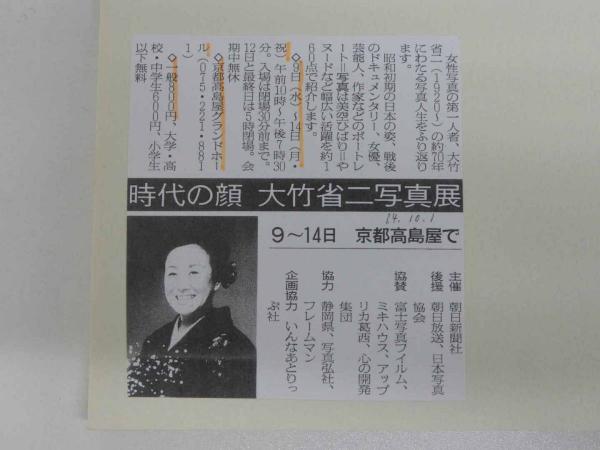 女性写真の第一人者、大竹
省二(1920〜)の約70年
にわたる写真人生をふり返り
ます。
昭和初期の日本の姿、戦後
のドキュメンタリー、女優、
芸能人、作家などのポートレ
ート=写真は美空ひばり=や
ヌードなど幅広い活躍を約1
60点で紹介します。
◇9日(水)〜14日(月・
祝)午前10時〜午後7時30
分。入場は閉場30分前まで。
12日と最終日は5時閉場。会
期中無休
◇京都高島屋グランドホー
ル(075・221・881
1)
◇一般800円、大学・高
校・中学生600円、小学生
以下無料
時代の顔 大竹省二写真展
84.10.1
9〜14日 京都高島屋で
主催 朝日新聞社
後援 朝日放送、日本写真
協会
協賛 富士写真フイルム、
ミキハウス、アップ
リカ葛西、心の開発
集団
協力 静岡県、写真弘社、
フレームマン
企画協力 いんなあとりっ
ぷ社